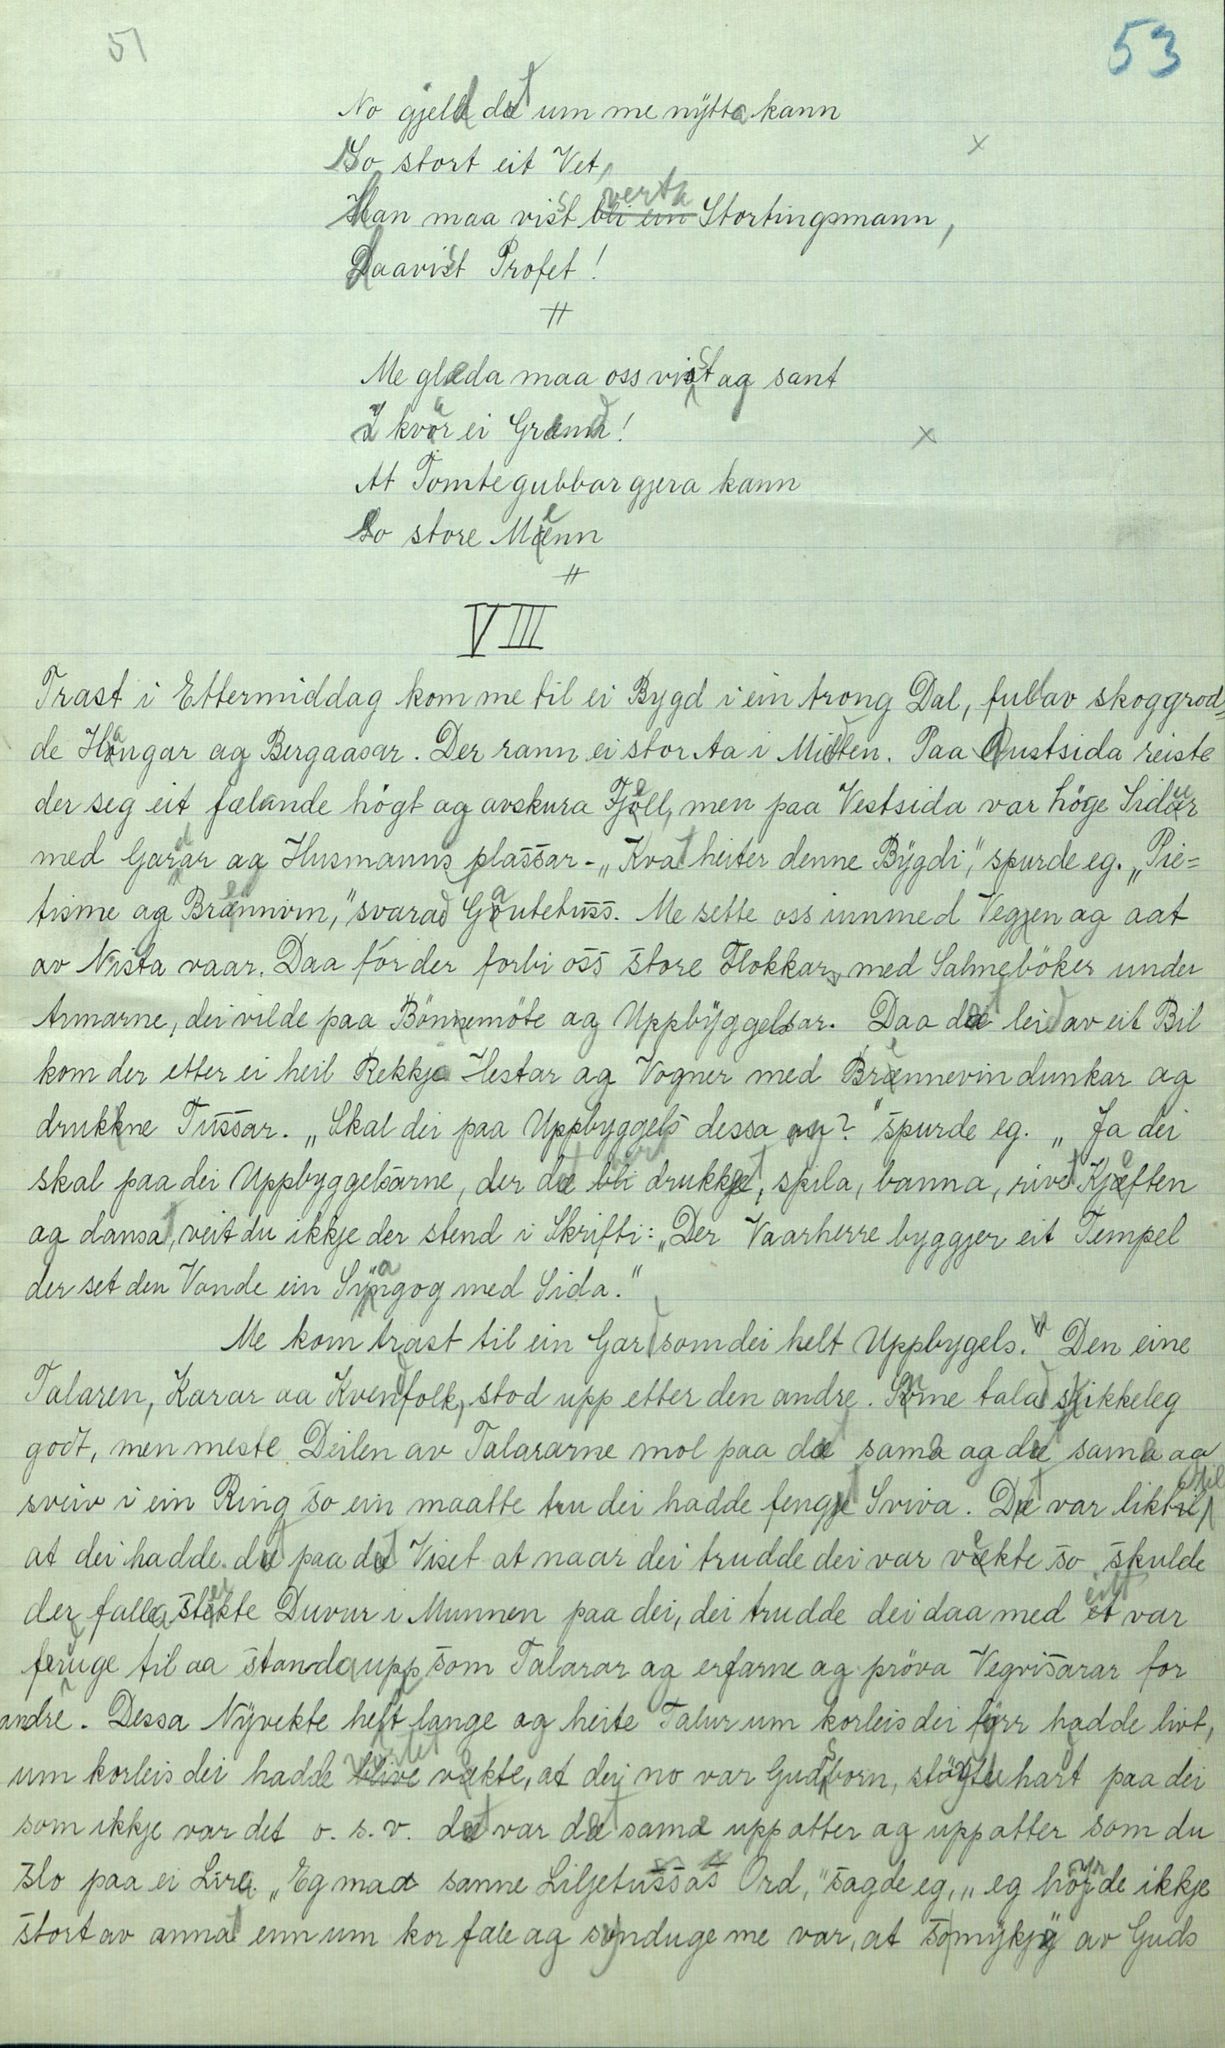 51
53
No gjeld det um me nytta kann
So stort eit Vet,
Han maa visst verta Stortingsmann,
Daavist Profet!
#
Me gleda maa oss visst ag sant
I kvar ei Grend!
At Tomtegubbar gjera kann
So store Menn
#
VIII
Trast i Ettermiddag kom me til ei Bygd i ein trong Dal, full av skoggrod-
de Hangar ag Bergaasar. Der rann ei stor Aa i Midten. Paa Austsida reiste
der seg eit fælande högt ag avskura Fjell, men paa Vestsida var höge Sidur
med Gardar ag Husmanns plassar - "Kvat heiter denne Bygdi," spurde eg. "Pie=
tisme ag Brennvin," svarad Gautetuss. Me sette oss innmed Vegjen ag aat
av Nista vaar. Daa fór der forbi oss store Flokkar med Salmeböker under
Armarne, dei vilde paa Bönnemöte ag Uppbyggelsar. Daa det leid av eit Bil
kom der etter ei heil Rekkje Hestar ag Vogner med Brennevindunkar ag
drukkne Tussar. "Skal dei paa Uppbyggels dessa og?" spurde eg. "Ja dei
skal paa dei Uppbyggelsarne, der det bli drukkjet, spila, banna, rivet Kjeften
ag dansat, veit du ikkje der stend i Skrifti: "Der Vaarherre byggjer eit Tempel
der set den Vonde ein Synagog med Sida."
Me kom trast til ein Gard som dei helt Uppbygels." Den eine
Talaren, Karar aa Kvendfolk, stod upp etter den andre. Some talad skikkeleg
godt, men meste Deilen av Talararne mol paa det sama ag det sama ag
sveiv i ein Ring so ein maatte tru dei hadde fengjet Sviva. Det var likt til
at dei hadde det paa det Viset at naar dei trudde dei var vekte so skulde
der falla stekte Duvur i Munnen paa dei, dei trudde dei daa med eitt var
föruge til aa standa upp som Talarar ag erfarne ag pröva Vegvisarar for
andre. Dessa Nyvekte heft lange ag heite Talur um korleis dei förr hadde livt,
um korleis dei hadde blive vekte, at dei no var Guds born, stögte hart paa dei
som ikkje var det o. s. v. det var det sama uppatter ag uppatter som du
slo paa ei Lire. "Eg maa sanne Liljetussas Ord," sagde eg, "eg höyrde ikkje
stort av annat enn um kor fæle ag synduge me var, at so mykje av Guds